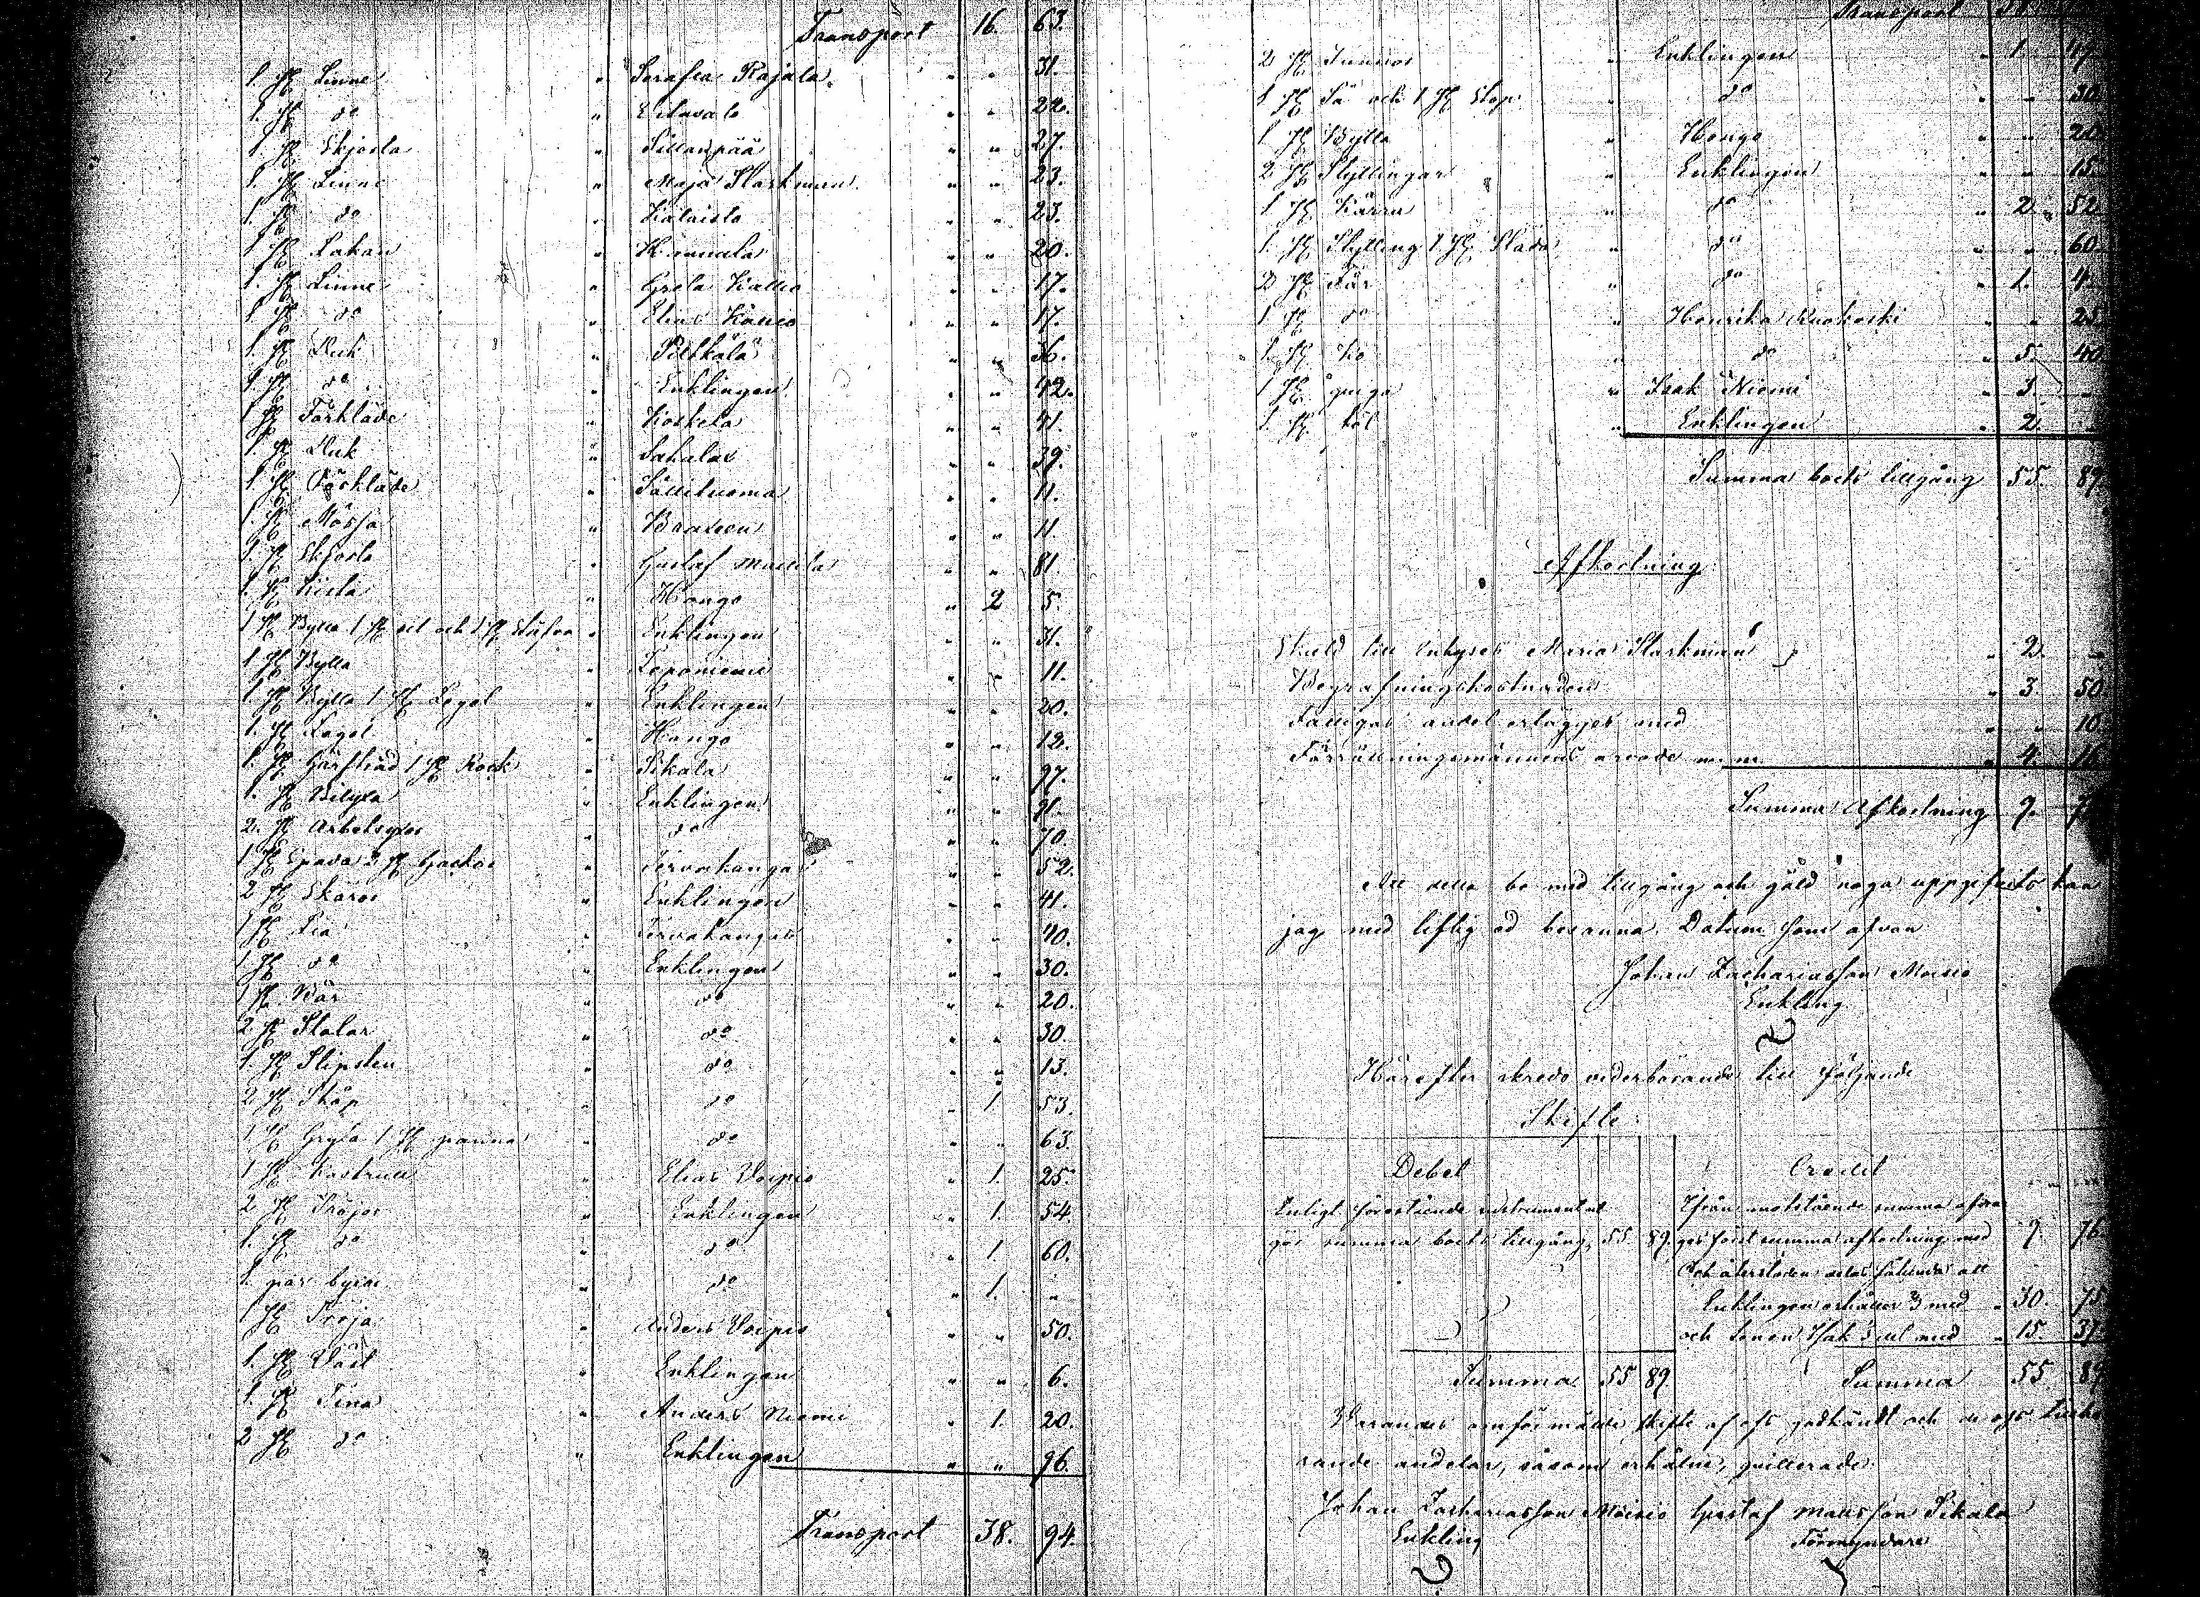 Transport 16. 63.
1. st Linne " Serafia Rajala " " 31.
1. st do " Eilavalo " " 22.
1. st Skjorta " Sillanpää " " 27.
1. st Linne " Maja Starkman " " 23.
1. st do " Kalaisto " " 23.
1 st Lakan " Hannula " " 20.
1. st Linne " Greta Kallio " " 17.
1 st do " Elias Kallio " " 17.
1. st Duk " Pitkälä " " 36.
1. st do " Enklingen " " 42.
1 st Förkläde " Koskela " " 41.
1. st Duk " Sakalas " " 39.
1 st Förkläde " Sällituoma " " 11.
1. st Mössa " " " 11.
1. st Skjorta " Gustaf Mattila " " 81.
1. st Kista " Hongo " 2 5.
1 st Bytta 1 st sil och 1 st Stäfva " Enklingen " " 31.
1 st Bytta " Leponiemi " " 11.
1 st Bytta 1 st Legel " Enklingen " " 20.
1. st Legel " Hongo " " 12.
1. st Gärftråd 1 st Rock " Sikala " " 97.
1. st Bilyxa " Enklingen " " 91.
2. st Arbetsyxor " do " " 70.
1 st Spada 2 st Hackor " Tervakangas " " 52.
2 st Skaror " Enklingen " " 41.
1 st Lia " Tervakangas " " 40.
1 st do " Enklingen " " 30.
1 st Bår " do " " 20.
2 st Stolar " do " " 30.
1. st Slipsten " do " " 13.
2 st Skåp " do " 1. 53.
1 st Gryta 1 st panna " do " " 63.
1 st Kastrull " Elias Voipio " 1. 25.
2 st Tröjor " Enklingen " 1. 54.
1. st do " do " 1 60.
1. par byxor " do " 1. "
1 st Tröja " Anders Voipio " " 50.
1. st Väst " Enklingen " " 6.
1. st Tina " Anders Niemi " 1. 20.
2 st do " Enklingen " " 96.
Transport 38. 94.
Transport
2 st Tunnor " Enklingen " 1.
1 st Så och 1 st Stop " do " " 30
1 st Bytta " Hongo " "
2 st Skyttlingar " Enklingen " " 15
1 st Kärra " do " 2 52
1. st Skyttling 1 st Släde " do " " 60
2 st Får " do " 1. 4
1 st do " Henrika Ruokoski " " 25
1. st Ko " do " 5. 40
1 st qviga " Isak Niemi " 3. "
1 st Enklingen " 2.
Summa boets tillgång 55. 89.
Afkortning
Skuld till Inhyses Maria Starkman " 2. "
Begrafningskostnaden " 3. 50
Fattigas andel erlägges med " " 10.
Förrättningsmännens arvode m. m. " 4. 16
Summa Afkortning 9. 76
Att detta bo med tillgång och gäld noga uppgifvits kan
jag med liflig ed besanna. Datum som ofvan
Johan Zachariasson Moisio
Enkling
Härefter skreds vederbörande till följande
Skifte:
Debet
Enligt föregående instrument ut-
gör summa boets tillgång 55 89.
Summa 55 89.
Credit
Ifrån motstående summa afdra-
ges först summa afkortning med 9. 76.
Och återstoden delas sålunda att
Enklingen erhåller 2/3 med " 30. 75
och sonen Isak 1/3 del med " 15. 37
Summa 55. 89
Varandes omförmälde skifte af oss godkändt och de oss tillhö-
rande andelar, såsom erhållne, qvitterade.
Johan Zachariasson Moisio
Enkling
Gustaf Mattsson Sikala
Förmyndare